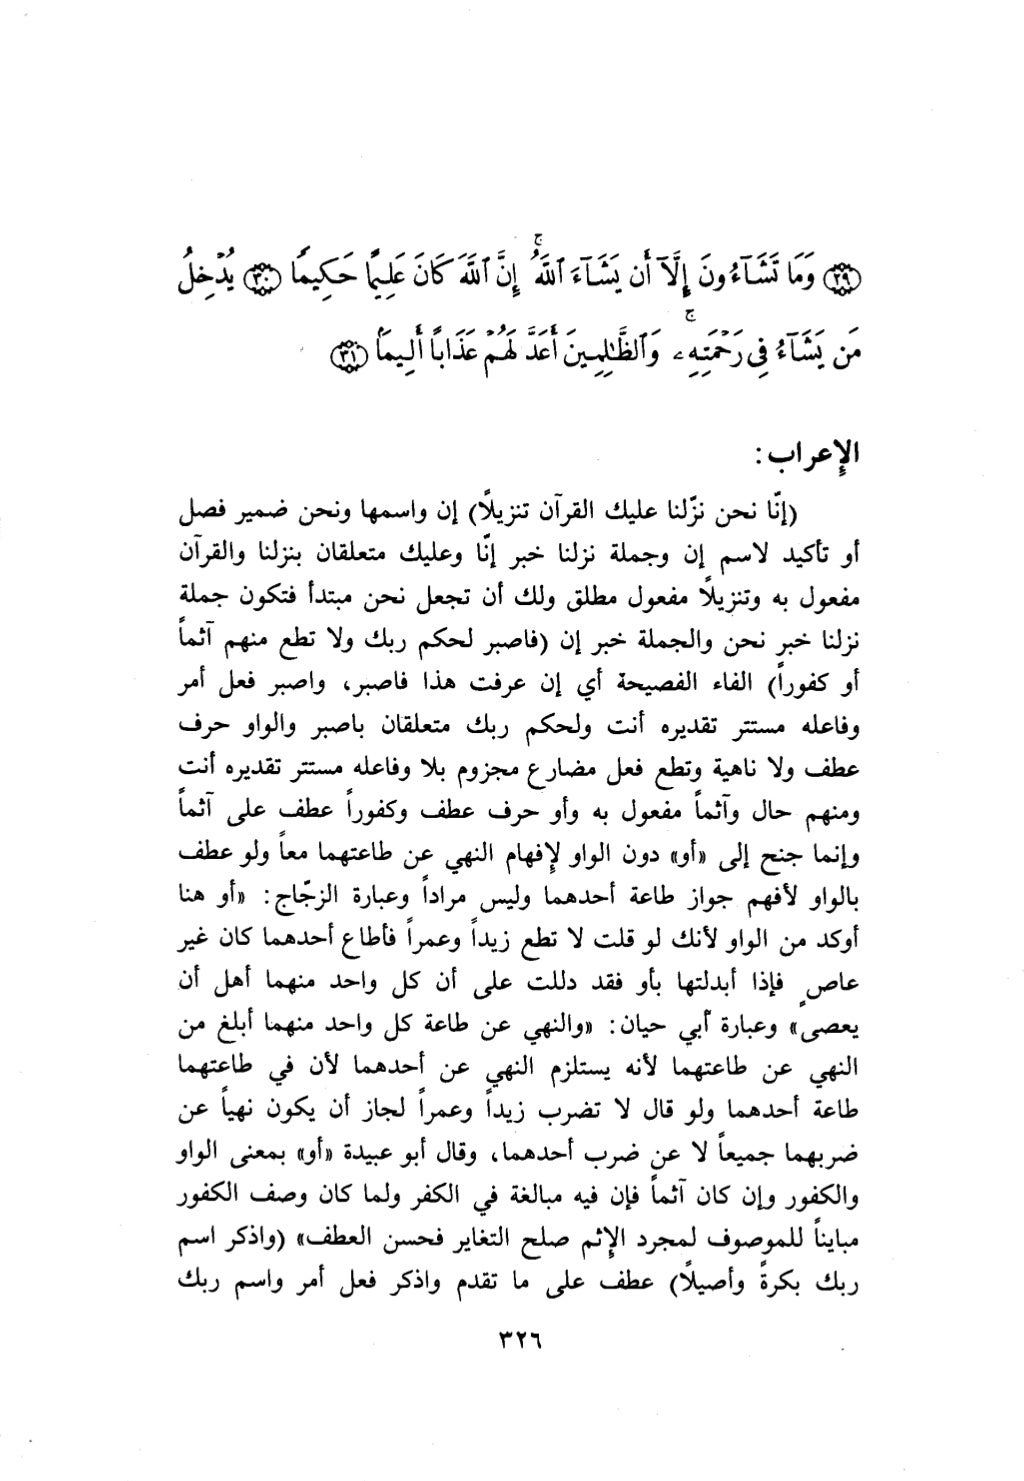 ﴿٢٩﴾ وَمَا تَشَآءُونَ إِلَّآ أَن يَشَآءَ ٱللَّهُۚ إِنَّ ٱللَّهَ كَانَ عَلِيمًا حَكِيمًا ﴿٣٠﴾ يُدۡخِلُ
مَن يَشَآءُ فِي رَحۡمَتِهِۦۚ وَٱلظَّٰلِمِينَ أَعَدَّ لَهُمۡ عَذَابًا أَلِيمَۢا ﴿٣١﴾
الإعراب:
(إنّا نحن نزّلنا عليك القرآن تنزيلًا) إن واسمها ونحن ضمير فصل
أو تأكيد لاسم إن وجملة نزلنا خبر إنّا وعليك متعلقان بنزلنا والقرآن
مفعول به وتنزيلًا مفعول مطلق ولك أن تجعل نحن مبتدأ فتكون جملة
نزلنا خبر نحن والجملة خبر إن (فاصبر لحكم ربك ولا تطع منهم آثماً
أو كفوراً) الفاء الفصيحة أي إن عرفت هذا فاصبر، واصبر فعل أمر
وفاعله مستتر تقديره أنت ولحكم ربك متعلقان باصبر والواو حرف
عطف ولا ناهية وتطع فعل مضارع مجزوم بلا وفاعله مستتر تقديره أنت
ومنهم حال وآثماً مفعول به وأو حرف عطف وكفوراً عطف على آثماً
وإنما جنح إلى «أو» دون الواو لإفهام النهي عن طاعتهما معاً ولو عطف
بالواو لأفهم جواز طاعة أحدهما وليس مراداً وعبارة الزجّاج: «أو هنا
أوكد من الواو لأنك لو قلت لا تطع زيداً وعمراً فأطاع أحدهما كان غير
عاصٍ فإذا أبدلتها بأو فقد دللت على أن كل واحد منهما أهل أن
يعصى» وعبارة أبي حيان: «والنهي عن طاعة كل واحد منهما أبلغ من
النهي عن طاعتهما لأنه يستلزم النهي عن أحدهما لأن في طاعتهما
طاعة أحدهما ولو قال لا تضرب زيداً وعمراً لجاز أن يكون نهياً عن
ضربهما جميعاً لا عن ضرب أحدهما، وقال أبو عبيدة «أو» بمعنى الواو
والكفور وإن كان آثماً فإن فيه مبالغة في الكفر ولما كان وصف الكفور
مبايناً للموصوف لمجرد الإثم صلح التغاير فحسن العطف» (واذكر اسم
ربك بكرةً وأصيلًا) عطف على ما تقدم واذكر فعل أمر واسم ربك
٣٢٦